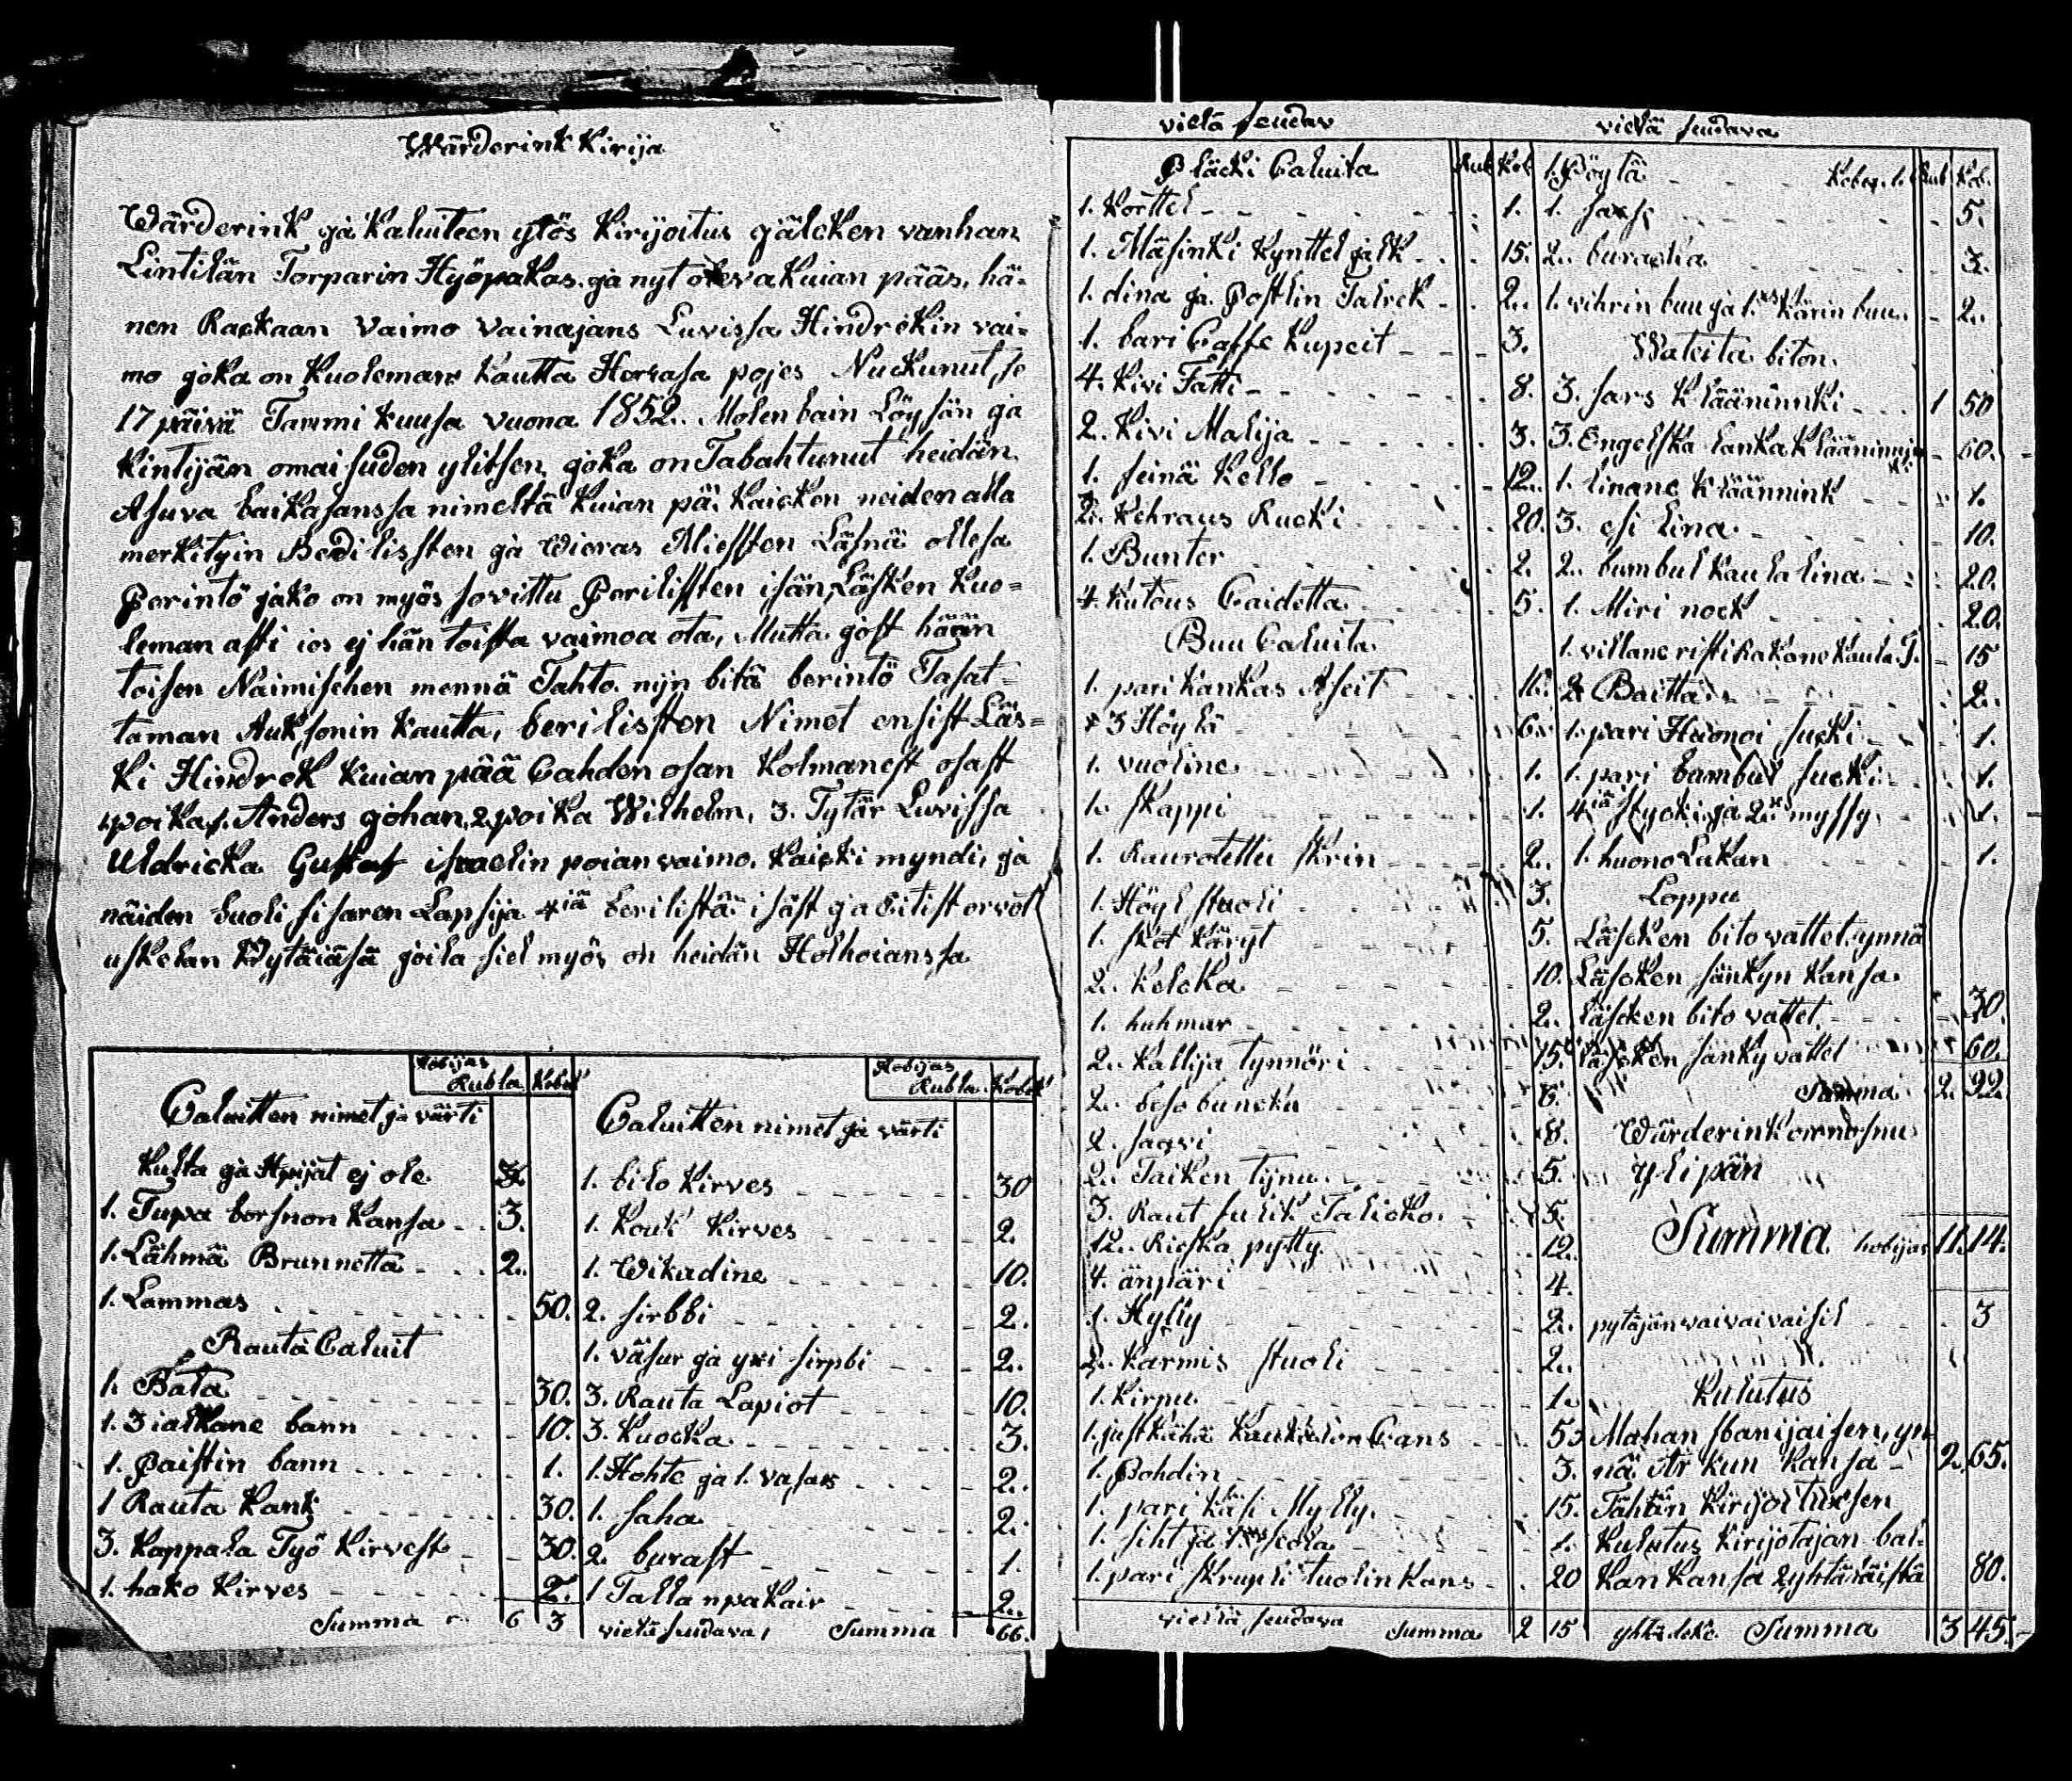 Wärderink Kirija
Wärderink ja Kaluiteen ylös Kirijoitus jälcken vanhan
Lintilän Torparin Hyöpakas. ja nyt oleva Kuian pääs, hä-
nen Rackaan Vaimo Vainajans Luvissa Hindrékin vai-
mo joka on Kuoleman Kautta Herrasa pojes Nuckunut, se
17 päivä Tammi Kuusa Vuona 1852. Molen bain Löysän ja
Kintijän omaisuden ylitsen, joka on Tabahtunut heidän
Asuva baikasanssa nimeltä Kuian pä. Kaicken neiden alla
merkityin Bedilissten ja Wieras Miessten Läsnä ollesa
Perintö jako on myös sovittu Perilissten isän Läsken Kuo=
leman asti ios ej hän toista vaimoa ota, Mutta jost hään
toisen Naimischen mennä Tahto. nijn bitä berintö Tasat=
taman Auksonin Kautta, berilissten Nimet ensist Läs=
Ki Hindrek Kuian pää Cahden osan Kolmanest osast
poika 1. Anders johan, 2 poika Wilhelm, 3. Tytär Luvissa
Uldricka Gustaf israelin poian vaimo. Kaicki myndi, ja
näiden buoli sisaren Lapsija 4iä berilistä isäst ja Eitist orvot
uskelan Kytäiäsä joila siel myös on heidän Holhoianssa
Hobijas Rubla Kobek
Caluitten nimet ja värti
Kulta ja Hopijat ej ole
1. Tupa borsnon Kansa 3.
1. Lähmä Brunnetta 2.
1. Lammas 50.
Rauta Caluit
1. Bata 30.
1. 3 ialkane bann 10.
1. Paistin bann 1.
1 Rauta Kank 30.
3. Kappala Työ Kirvest 30.
1. hako Kirves 2.
Summa 6 3
Hobijas Rubla Kobek
Caluitten nimet ja värti
1. bilo Kirves 30
1. Kouk Kirves 2.
1. Wikadine 10.
2. sirbbi 2.
1. väsur ja yxi sirpbi 2.
3. Rauta Lapiot 10.
3. Kuocka 3.
1. Hohte ja 1. vasara 2.
1. saha 2.
2. burast 1.
1 Tallanpakair 2.
vielä seudava, Summa 66.
vielä seudav
Pläcki Caluita Rub Kob
1. Korttel 1.
1. Mäsinki Kynttel jalk 15.
1. dina ja. Postlin Talrek 2.
1. bari Caffe Kupeit 3.
4. Kivi Fatti 8.
2. Kivi Malija 3.
1. seinä Kello 12.
2. Kehraus Rucki 20.
1. Bunter 2.
4. Kutous Caidetta 5.
Buu Caluita
1. pari Kankas Aseit 16.
3 Höylä 6.
1. vuoline 1.
1. skappi 1.
1. Raurotettu skrin 2.
1. Höylstuoli 3.
1. Käryt 5.
2. Kelcka 10.
1. huhmar 2.
2. Kallija tynnöri 15.
2. beso buncka 6.
2. saavi 8.
2. Taiken tijnu 5.
3. Raut sulik Talicko. 5.
12. Rieska pytty 12.
4. änpäri 4.
1. Hylly 2.
2. Karmis stuoli 2.
1. Kirnu 1.
1. Pohdin 3.
1. pari Käsi Mylly. 15.
1. siht ja seola 1.
1. pari skrupli tuolin Kans 20
vielä seudava Summa 2 15
vielä seudava
1. Pöytä Kobeg. Rub Kob.
1. saxsi 5.
2. buraska 3.
1. vihrin buu ja 1. Kärin buu 2.
Wateita biton.
3. sars Klääninnki 1 50
3. Engelska lanka Klääninnji 60.
1. linane Kläännink 1.
3. esi lina 10.
2. bumbul Kaula lina 20.
1. Miri nock 20.
1. villane risti Rakone Kaula T. 15
2 Baitta 2.
1. pari Huonoi sucki 1.
1. pari bambul sucki 1.
4iä styckijä 2 myssy 1.
1. huono Lakan 1.
Loppu
Läscken bito vattet. ynnä
Läscken sänkyn Kansa.
Läscken bito vattet 30.
Läscken sänky vattet 60.
Summa 2. 22.
yli pän
Summa hobijas 11. 14.
pytäjän vaivaivaisil 3
Kulutus
Mahan banijaisen, yn
nä Ar Kun Kansa 2. 65.
Tähtän Kirijoituxsen
Kulutus Kirijotajan bal-
Kan Kansa 2 yhtäläistä 80.
Summa 3 45.